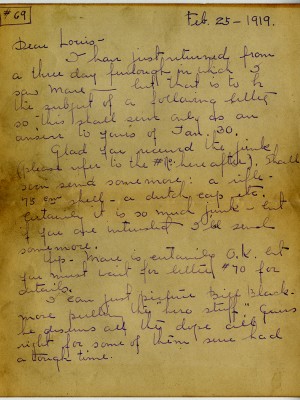 #69
Feb. 25 - 1919.
Dear Louis -
I have just returned from
a three day furlough in which I
saw Mare but that is to be
the subject of a following letter
so this shall serve only as an
answer to yours of Jan. 30.
Glad you received the junk
(please refer to the # hereafter). Shall
soon send some more: a rifle -
75 cm shell - a dutch cap etc.
Certainly it is so much junk - but
if you are interested I'll send
some more.
Yep - Mare is certainly O.K. but
you must wait for letter #70 for
details.
I can just picture Biff Black-
more pulling "the hero stuff". Guess
he deserves all the dope all
right for some of them sure had
a tough time.